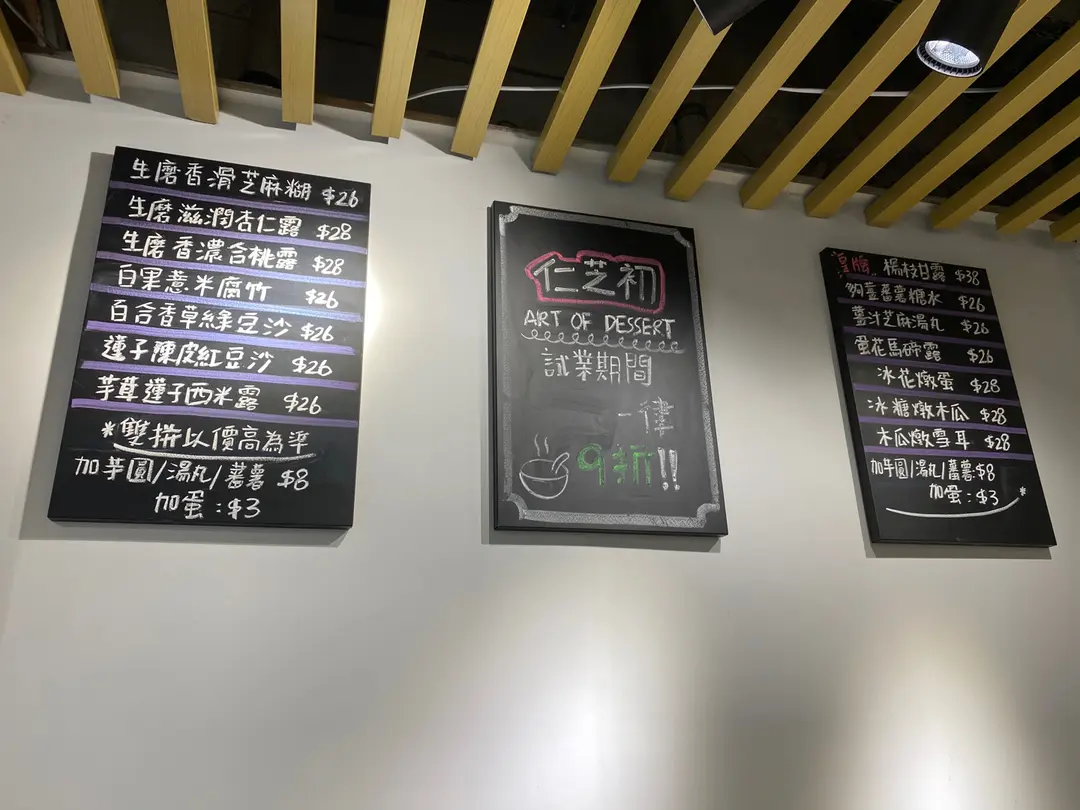 生磨香滑芝麻糊 $26
生磨滋潤杏仁露 $28
生磨香濃合桃露 $28
白果薏米腐竹 $26
百合香草綠豆沙 $26
蓮子陳皮紅豆沙 $26
芋茸蓮子西米露 $26
*雙拼以價高為準
加芋圓/湯丸/蕃薯 $8
加蛋:$3
仁芝初
ART OF DESSERT
試業期間
一律
9折!!
楊枝甘露 $38
夠薑蕃薯糖水 $26
薑汁芝麻湯丸 $26
蛋花馬碲露 $26
冰花燉蛋 $28
冰糖燉木瓜 $28
木瓜燉雪耳 $28
加芋圓/湯丸/蕃薯:$8
加蛋:$3 *